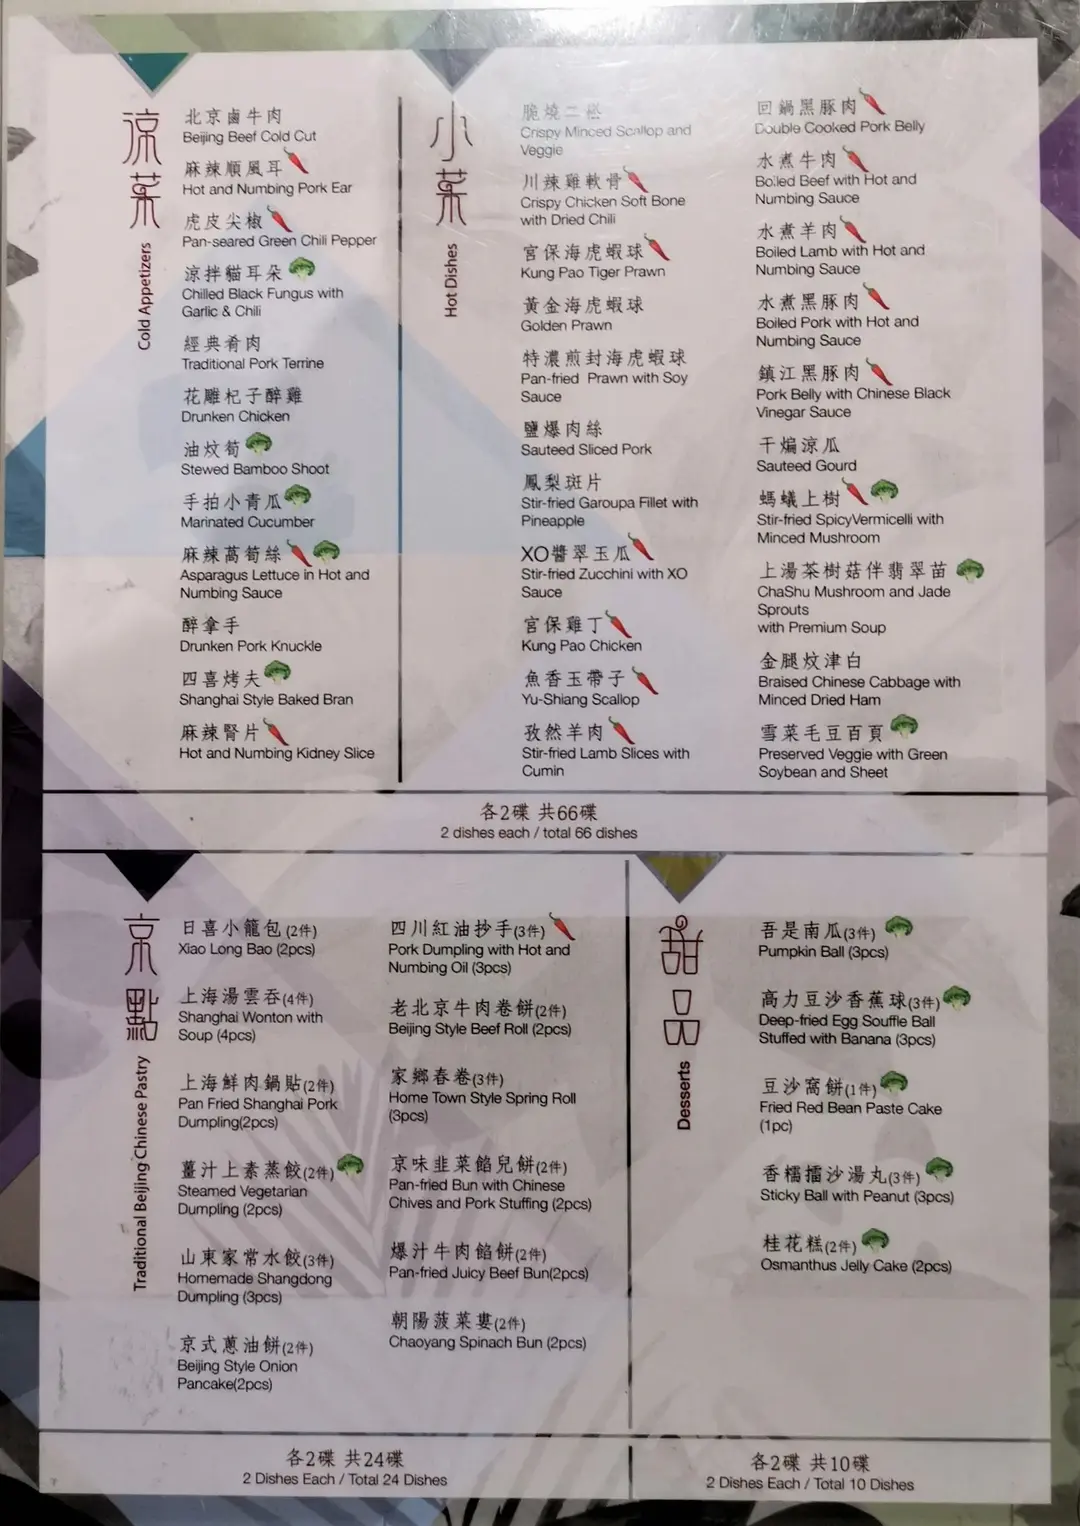 涼菜
Cold Appetizers
北京鹵牛肉
Beijing Beef Cold Cut
麻辣順風耳
Hot and Numbing Pork Ear
虎皮尖椒
Pan-seared Green Chili Pepper
涼拌貓耳朵
Chilled Black Fungus with
Garlic & Chili
經典肴肉
Traditional Pork Terrine
花雕杞子醉雞
Drunken Chicken
油炆筍
Stewed Bamboo Shoot
手拍小青瓜
Marinated Cucumber
麻辣萵筍絲
Asparagus Lettuce in Hot and
Numbing Sauce
醉拿手
Drunken Pork Knuckle
四喜烤夫
Shanghai Style Baked Bran
麻辣腎片
Hot and Numbing Kidney Slice
小菜
Hot Dishes
脆燒二崧
Crispy Minced Scallop and
Veggie
川辣雞軟骨
Crispy Chicken Soft Bone
with Dried Chili
宮保海虎蝦球
Kung Pao Tiger Prawn
黃金海虎蝦球
Golden Prawn
特濃煎封海虎蝦球
Pan-fried Prawn with Soy
Sauce
鹽爆肉絲
Sauteed Sliced Pork
鳳梨斑片
Stir-fried Garoupa Fillet with
Pineapple
XO醬翠玉瓜
Stir-fried Zucchini with XO
Sauce
宮保雞丁
Kung Pao Chicken
魚香玉帶子
Yu-Shiang Scallop
孜然羊肉
Stir-fried Lamb Slices with
Cumin
回鍋黑豚肉
Double Cooked Pork Belly
水煮牛肉
Boiled Beef with Hot and
Numbing Sauce
水煮羊肉
Boiled Lamb with Hot and
Numbing Sauce
水煮黑豚肉
Boiled Pork with Hot and
Numbing Sauce
鎮江黑豚肉
Pork Belly with Chinese Black
Vinegar Sauce
干煸涼瓜
Sauteed Gourd
螞蟻上樹
Stir-fried SpicyVermicelli with
Minced Mushroom
上湯茶樹菇伴翡翠苗
ChaShu Mushroom and Jade
Sprouts
with Premium Soup
金腿炆津白
Braised Chinese Cabbage with
Minced Dried Ham
雪菜毛豆百頁
Preserved Veggie with Green
Soybean and Sheet
各2碟 共66碟
2 dishes each / total 66 dishes
京點
Traditional Beijing Chinese Pastry
日喜小籠包 (2件)
Xiao Long Bao (2pcs)
上海湯雲吞(4件)
Shanghai Wonton with
Soup (4pcs)
上海鮮肉鍋貼(2件)
Pan Fried Shanghai Pork
Dumpling(2pcs)
薑汁上素蒸餃(2件)
Steamed Vegetarian
Dumpling (2pcs)
山東家常水餃(3件)
Homemade Shangdong
Dumpling (3pcs)
京式蔥油餅(2件)
Beijing Style Onion
Pancake(2pcs)
四川紅油抄手(3件)
Pork Dumpling with Hot and
Numbing Oil (3pcs)
老北京牛肉卷餅(2件)
Beijing Style Beef Roll (2pcs)
家鄉春卷(3件)
Home Town Style Spring Roll
(3pcs)
京味韭菜餡兒餅(2件)
Pan-fried Bun with Chinese
Chives and Pork Stuffing (2pcs)
爆汁牛肉餡餅(2件)
Pan-fried Juicy Beef Bun(2pcs)
朝陽菠菜婁(2件)
Chaoyang Spinach Bun (2pcs)
各2碟 共24碟
2 Dishes Each / Total 24 Dishes
甜品
Desserts
吾是南瓜(3件)
Pumpkin Ball (3pcs)
高力豆沙香蕉球(3件)
Deep-fried Egg Souffle Ball
Stuffed with Banana (3pcs)
豆沙窩餅(1件)
Fried Red Bean Paste Cake
(1pc)
香糯擂沙湯丸(3件)
Sticky Ball with Peanut (3pcs)
桂花糕(2件)
Osmanthus Jelly Cake (2pcs)
各2碟 共10碟
2 Dishes Each / Total 10 Dishes